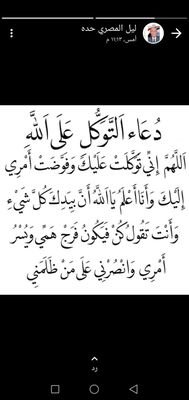 ليل المصري حده
أمس، ١١:١٣ م
دُعَاء اَلتَّوَكُّل عَلَى اَللَّهِ
اَللَّهُمَّ إِنِّي تَوَكَّلْتُ عَلَيْكَ وَفَوَّضْتُ أَمْرِي
إِلَيْكَ وَأَنَا أَعْلَمُ يَا اَللَّهُ أَنَّ بِيَدِكَ كُلَّ شَيْءٍ
وَأَنْتَ تَقُولُ كُنْ فَيَكُونُ فَرِّجْ هَمِّي وَيَسِّرْ
أَمْرِي وَانْصُرْنِي عَلَى مَنْ ظَلَمَنِي
رد